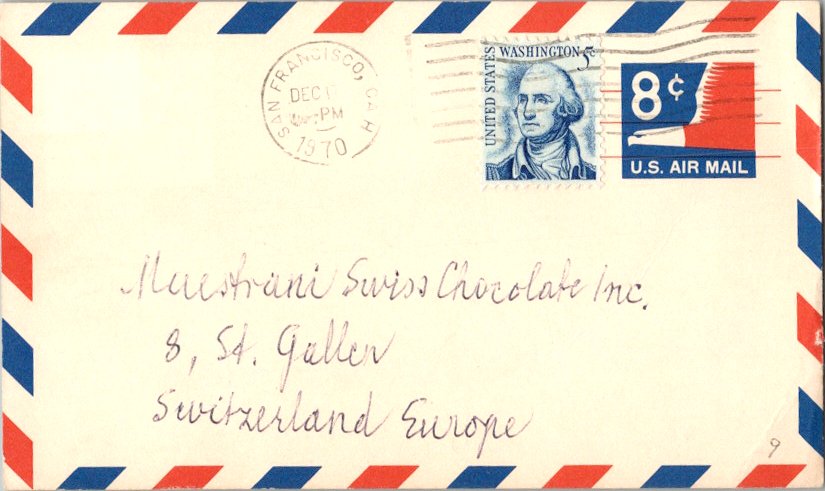 SAN FRANCISCO, CALIF
DEC
PM
1970
UNITED STATES
WASHINGTON 5c
8¢
U.S. AIR MAIL
Maestrani Swiss Chocolate Inc.
8, St. Gallen
Switzerland Europe
9